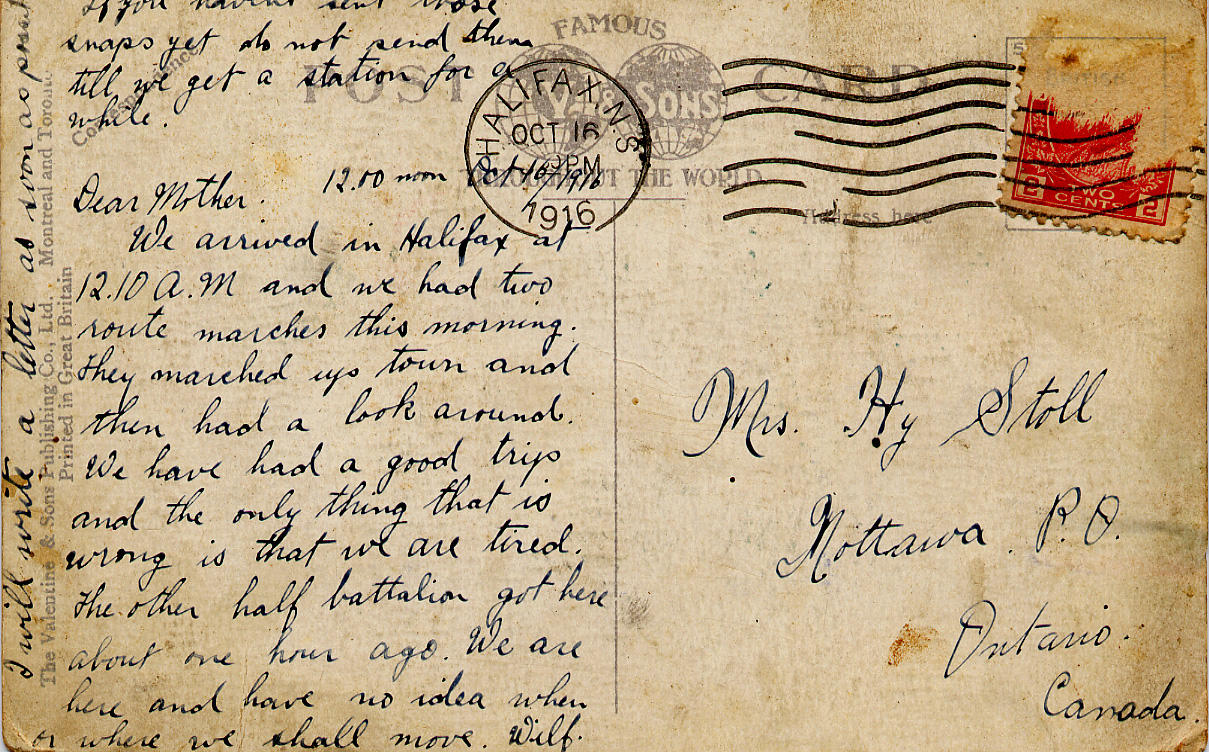 If you haven't sent those
snaps yet do not send them
till we get a station for a
while.
12.00 noon Oct 16/1916
Dear Mother.
We arrived in Halifax at
12.10 A.M and we had two
route marches this morning.
They marched up town and
then had a look around.
We have had a good trip
and the only thing that is
wrong is that we are tired.
The other half battalion got here
about one hour ago. We are
here and have no idea when
or where we shall move. Wilf.
I will write a letter as soon as
The Valentine & Sons Publishing Co., Ltd. Montreal and Toronto
Printed in Great Britain
FAMOUS
POST CARD
V & SONS
THROUGHOUT THE WORLD
Address here
HALIFAX, N.S
OCT 16
PM
1916
2 TWO 2
CENTS
Mrs. Hy Stoll
Nottawa P.O.
Ontario.
Canada.